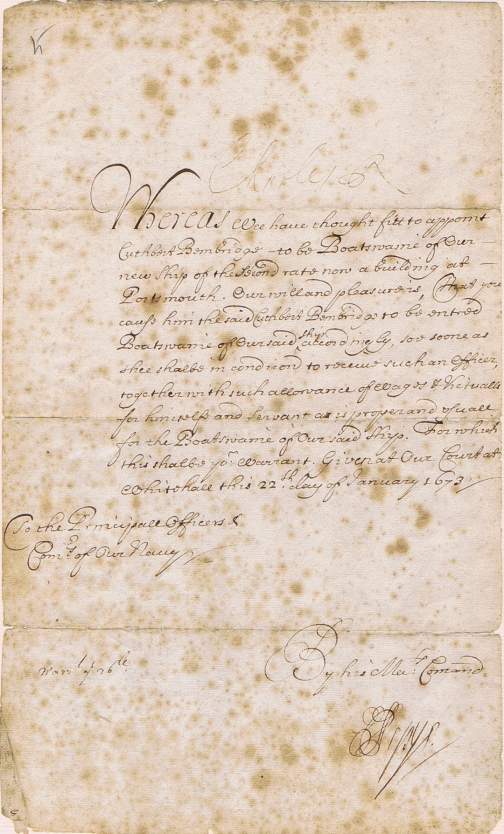 Charles R
Whereas Wee have thought fitt to appoint
Cuthbert Bembridge to be Boatswaine of Our
new Ship of the second rate now a building at
Portsmouth. Our will and pleasure is, That you
cause him the said Cuthbert Bembridge to be entred
Boatswaine of Our said Shyp accordingly, soe soone as
shee shalbe in condicion to receive such an Officer,
together with such allowance of Wages & Victualls
for himselfe and Servant as is proper and usuall
for the Boatswaine of Our said Shyp. For which
this shalbe yor. Warrant. Given at Our Court at
Whitehall this 22th. day of January 1673
To the Principall Officers &
Comrs. of Our Navy
By his Mats. Comand
SPepys.